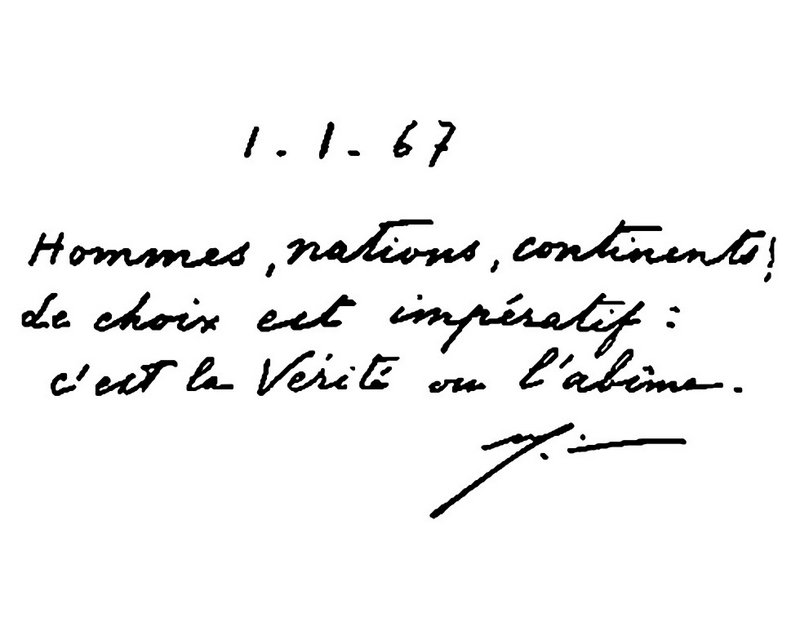 1.1.67
Hommes, nations, continents!
Le choix est impératif :
c'est la Vérité ou l'abîme.